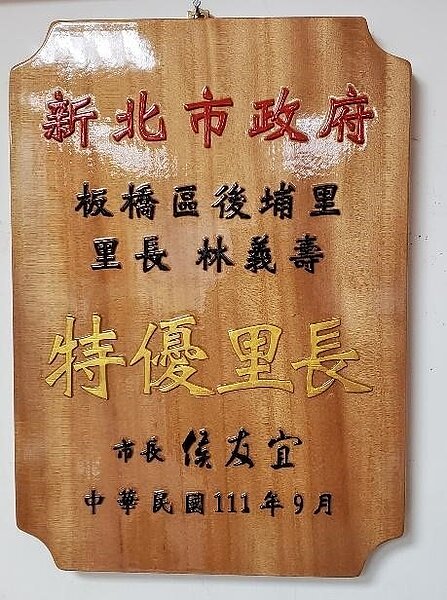 新北市政府
板橋區後埔里
里長 林義壽
特優里長
市長 侯友宜
中華民國111年9月